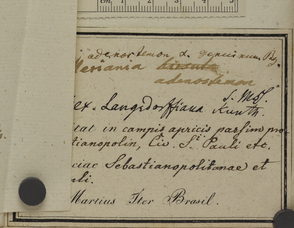 adenostemon d. depressum Bg.
Meriania hirsuta
adenostemon
s. Mss.
ex. Langsdorffiana Kunth.
tat in campis apricis passim pro
tianopolin, Civ. S. Pauli etc.
ciae Sebastianopolitanae et
uli.
Martius Iter Brasil.